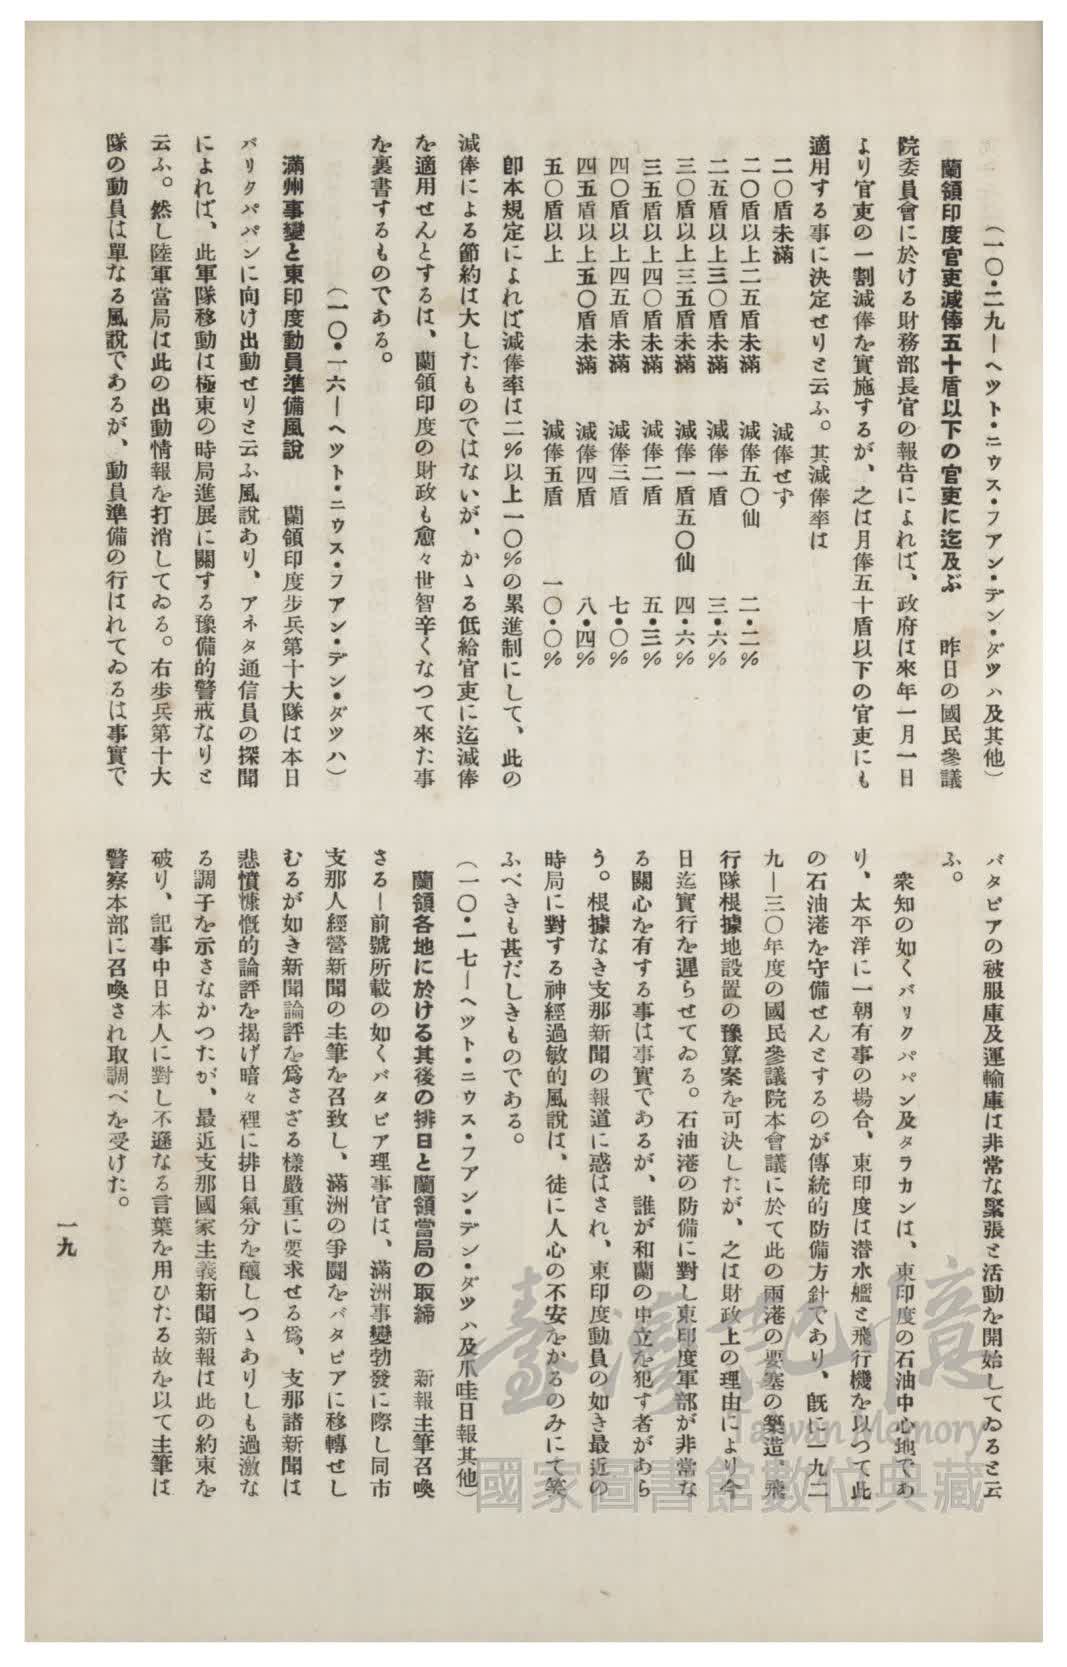 (一〇・二九—ヘツト・ニウス・フアン・デン・ダツハ及其他)
蘭領印度官吏減俸五十盾以下の官吏に迄及ぶ　昨日の國民參議
院委員會に於ける財務部長官の報告によれば、政府は來年一月一日
より官吏の一割減俸を實施するが、之は月俸五十盾以下の官吏にも
適用する事に決定せりと云ふ。其減俸率は
二〇盾未滿　減俸せず
二〇盾以上二五盾未滿　減俸五〇仙　二・二%
二五盾以上三〇盾未滿　減俸一盾　三・六%
三〇盾以上三五盾未滿　減俸一盾五〇仙　四・六%
三五盾以上四〇盾未滿　減俸二盾　五・三%
四〇盾以上四五盾未滿　減俸三盾　七・〇%
四五盾以上五〇盾未滿　減俸四盾　八・四%
五〇盾以上　減俸五盾　一〇・〇%
卽本規定によれば減俸率は二%以上一〇%の累進制にして、此の
減俸による節約は大したものではないが、かゝる低給官吏に迄減俸
を適用せんとするは、蘭領印度の財政も愈々世智辛くなつて來た事
を裏書するものである。
(一〇・一六—ヘツト・ニウス・フアン・デン・ダツハ)
滿州事變と東印度動員準備風說　蘭領印度步兵第十大隊は本日
バリクパパンに向け出動せりと云ふ風說あり、アネタ通信員の探聞
によれば、此軍隊移動は極東の時局進展に關する豫備的警戒なりと
云ふ。然し陸軍當局は此の出動情報を打消してゐる。右步兵第十大
隊の動員は單なる風說であるが、動員準備の行はれてゐるは事實で
バタビアの被服庫及運輸庫は非常な緊張と活動を開始してゐると云
ふ。
衆知の如くバリクパパン及タラカンは、東印度の石油中心地であ
り、太平洋に一朝有事の場合、東印度は潛水艦と飛行機を以つて此
の石油港を守備せんとするのが傳統的防備方針であり、旣に一九二
九—三〇年度の國民參議院本會議に於て此の兩港の要塞の築造、飛
行隊根據地設置の豫算案を可決したが、之は財政上の理由により今
日迄實行を遲らせてゐる。石油港の防備に對し東印度軍部が非常な
る關心を有する事は事實であるが、誰が和蘭の中立を犯す者があら
う。根據なき支那新聞の報道に惑はされ、東印度動員の如き最近の
時局に對する神經過敏的風說は、徒に人心の不安をかるのみにて笑
ふべきも甚だしきものである。
(一〇・一七—ヘツト・ニウス・フアン・デン・ダツハ及爪哇日報其他)
蘭領各地に於ける其後の排日と蘭領當局の取締　新報主筆召喚
さる—前號所載の如くバタビア理事官は、滿洲事變勃發に際し同市
支那人經營新聞の主筆を召致し、滿洲の爭鬪をバタビアに移轉せし
むるが如き新聞論評を爲さざる樣嚴重に要求せる爲、支那諸新聞は
悲憤慷慨的論評を揭げ暗々裡に排日氣分を釀しつゝありしも過激な
る調子を示さなかつたが、最近支那國家主義新聞新報は此の約束を
破り、記事中日本人に對し不遜なる言葉を用ひたる故を以て主筆は
警察本部に召喚され取調べを受けた。
一九
臺灣記憶
Taiwan Memory
國家圖書館數位典藏